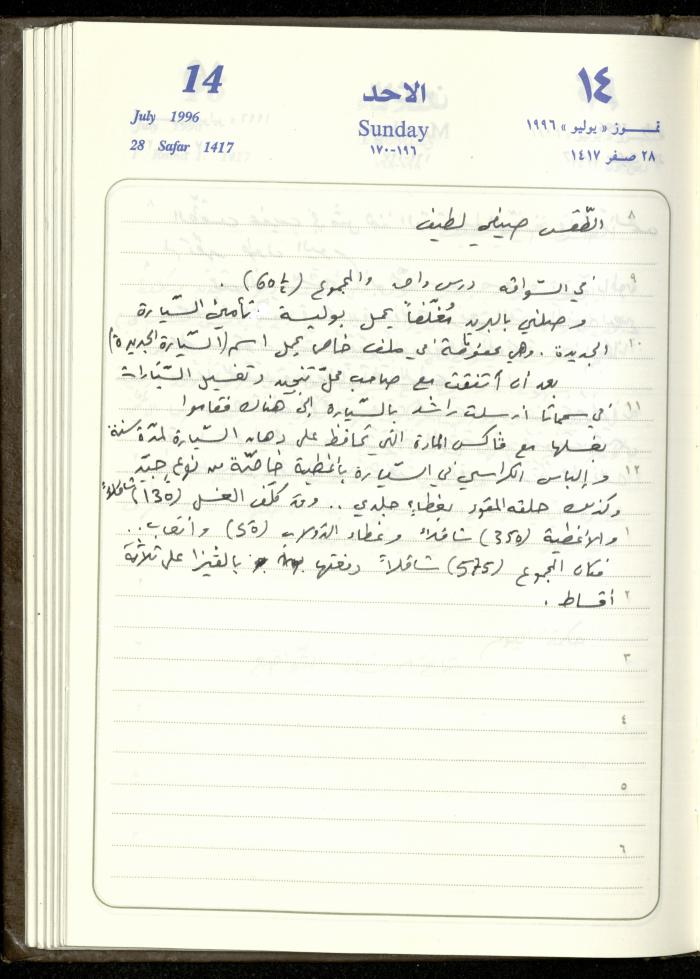 14
July 1996
28 Safar 1417
الاحد
Sunday
١٩٦-١٧٠
١٤
تمــوز « يوليو » ١٩٩٦
٢٨ صفر ١٤١٧
٨
الطّقس صيفي لطيف
٩
في السّواقه درس واحد والمجموع (60½) .
وصلني بالبريد مُغلّفاً يحمل بوليسة تأمين السّيارة
١٠
الجديدة . وهي محفوظة في ملف خاص يحمل اسم (السّيارة الجديدة)
بعد أن أتفقت مع صاحب محلّ تنجيد وتغسيل السّيّارات
١١
في سمّاتا أرسلت راشد بالسّيارة إلى هناك فقاموا
بغسلها مع ڤاكس المادة التي تحافظ على دهان السّيارة لمدّة سنة
١٢
وإلباس الكراسي في السّيارة بأغطية خاصّة من نوع جيّد
وكذلك حلقه المقود بغطاءٍ جلدي .. وقد كلّف الغسل (135) شاقلاً
١
والأغطية (350) شاقلاً وغطاء الدّولاب (50) وأتعاب ..
فكان المجموع (575) شاقلاً دفعتها بالڤيزا على ثلاثة
٢
أقساط .
٣
٤
٥
٦